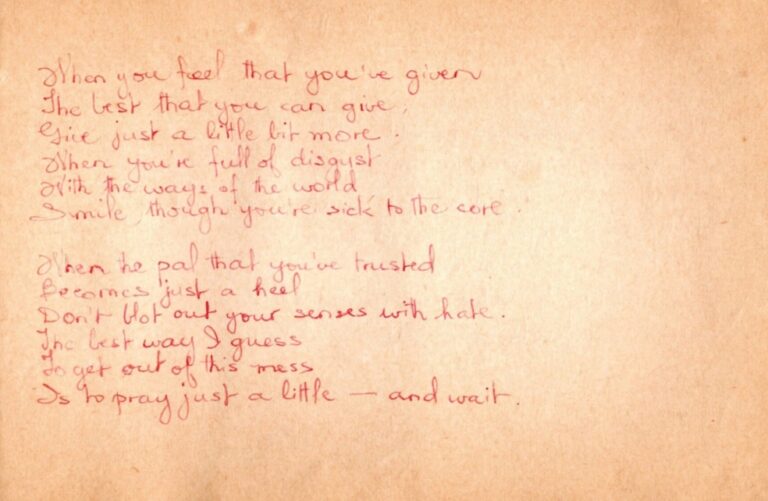 When you feel that you've given
The best that you can give,
Give just a little bit more.
When you're full of disgust
With the ways of the world
Smile, though you're sick to the core.
When he pal that you've trusted
Becomes just a heel
Don't blot out your senses with hate.
The best way I guess
To get out of this mess
Is to pray just a little — and wait.